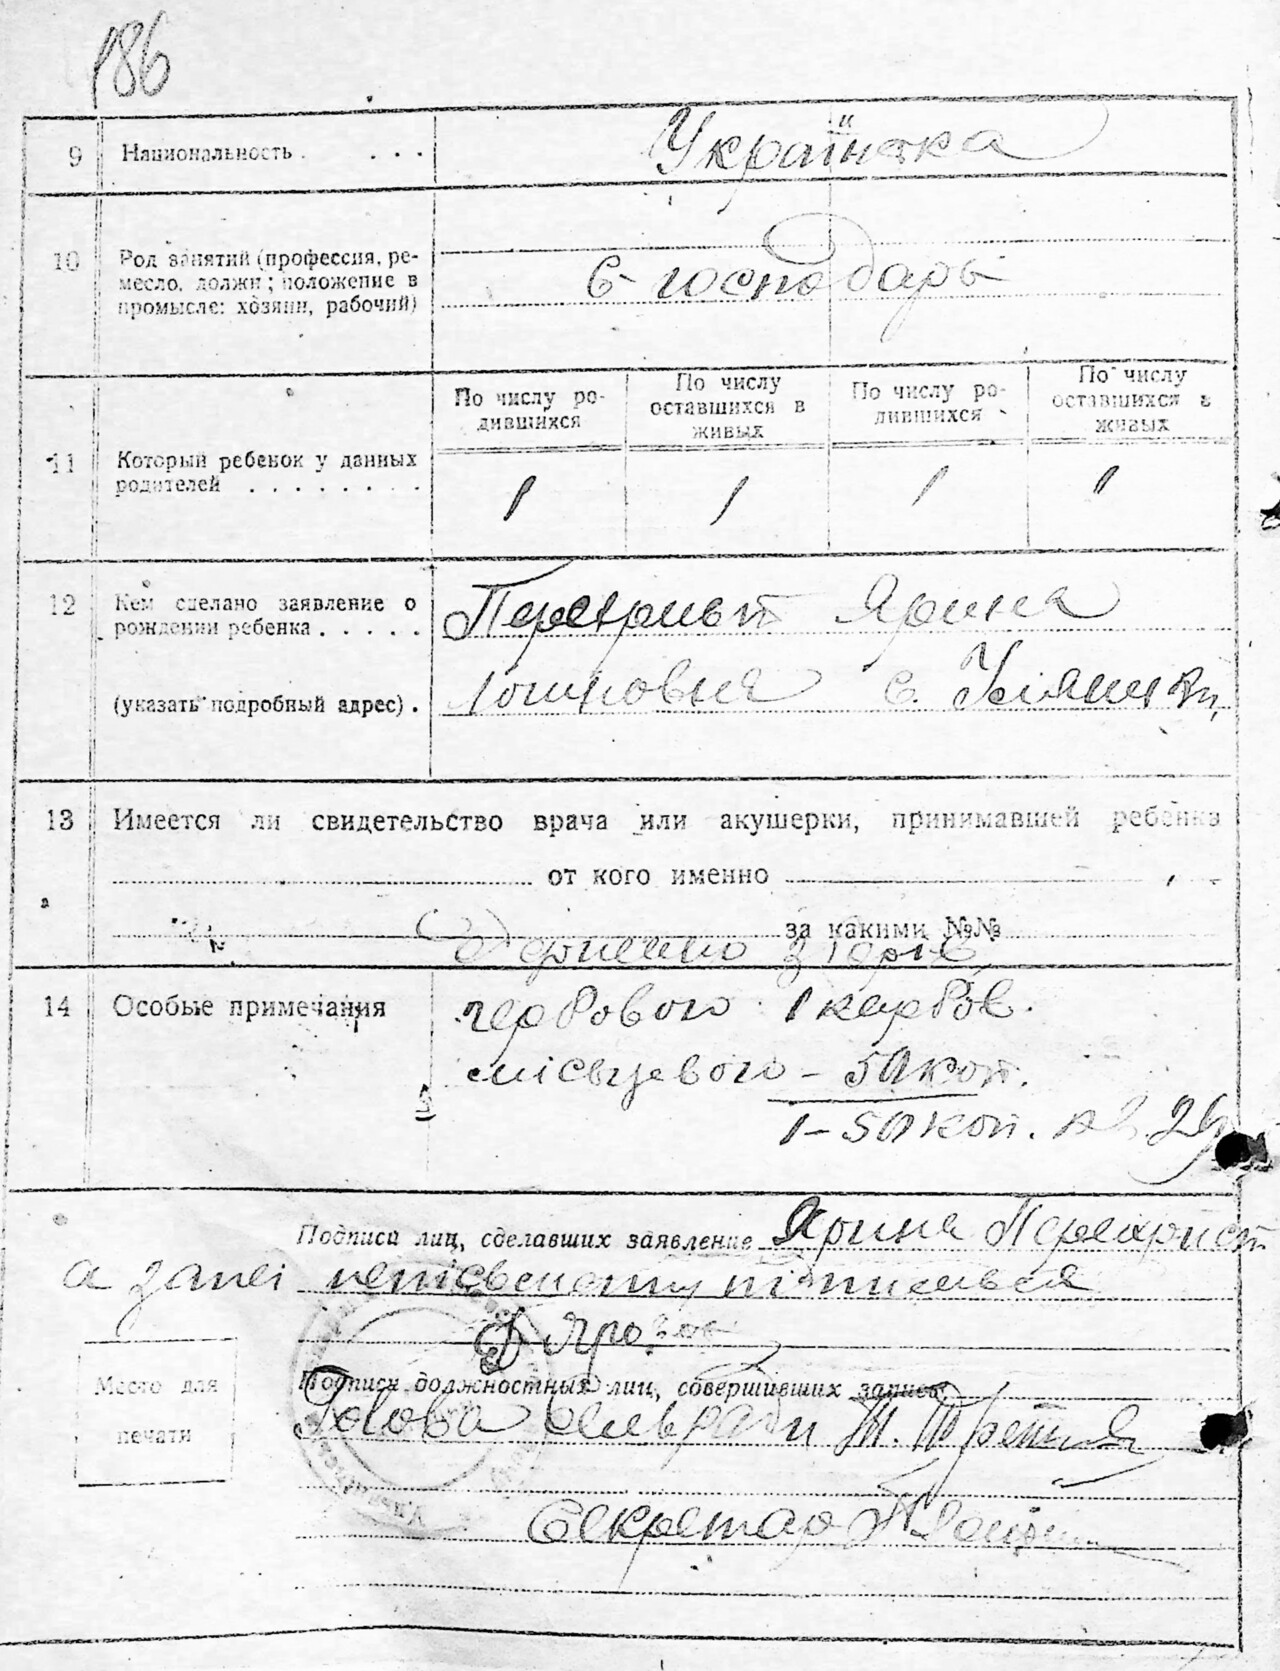 186
9 Национальность . . . . Українка
и
10 Род занятий (профессия, ре-
месло, должн; положение в
промысле: хозяин, рабочий)
С-господарь
По числу ро-
дившихся
По числу
оставшихся в
живых
По числу ро-
дившихся
По числу
оставшихся в
живых
11 Который ребенок у данных
родителей . . . . . . . .
1 1 1 1
12 Кем сделано заявление о
рождении ребенка . . . . .
(указать подробный адрес) .
Ярина
с.
13 Имеется ли свидетельство врача или акушерки, принимавшей ребенка
от кого именно
за какими №№
14 Особые примечания
1 карбов.
місцевого - 50 коп.
1-50 коп.
Подписи лиц, сделавших заявление Ярина
а за неї неписьменну
Место для
печати
Подписи должностных лиц, совершивших запись:
Голова сільради
Секретар